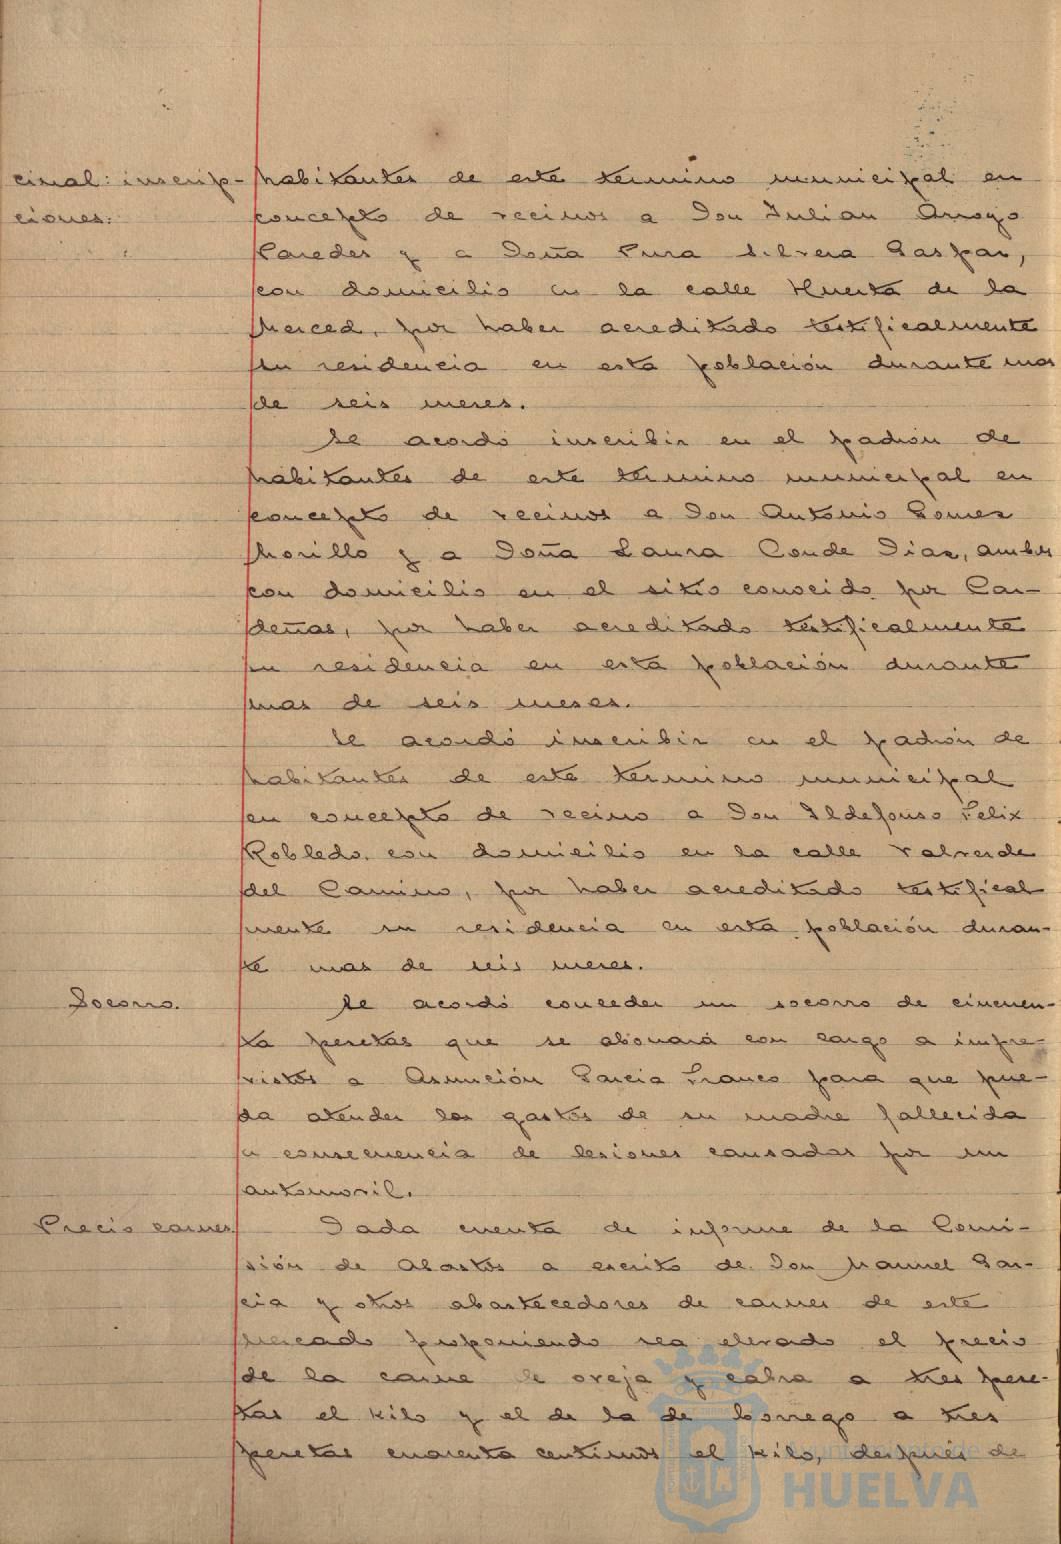 cinal: inscrip-
ciones:
habitantes de este termino municipal en
concepto de vecinos a Don Julian Arroyo
Paredes y a Doña Pura Silvera Gaspar,
con domicilio en la calle Huerta de la
Merced, por haber acreditado testificalmente
su residencia en esta población durante mas
de seis meses.
Se acordó inscribir en el padrón de
habitantes de este termino municipal en
concepto de vecinos a Don Antonio Gomez
Morillo y a Doña Laura Conde Diaz, ambos
con domicilio en el sitio conocido por Car-
deñas, por haber acreditado testificalmente
su residencia en esta población durante
mas de seis meses.
Se acordó inscribir en el padrón de
habitantes de este termino municipal
en concepto de vecino a Don Ildefonso Felix
Robledo con domicilio en la calle Valverde
del Camino, por haber acreditado testifical
mente su residencia en esta población duran-
te mas de seis meses.
Socorro.
Se acordó conceder un socorro de cincuen-
ta pesetas que se abonará con cargo a impre-
vistos a Asunción Garcia Franco para que pue-
da atender los gastos de su madre fallecida
a consecuencia de lesiones causadas por un
automovil.
Precio carnes
Dada cuenta de informe de la Comi-
sión de Abastos a escrito de Don Manuel Gar-
cia y otros abastecedores de carnes de este
Mercado proponiendo sea elevado el precio
de la carne de oveja y cabra a tres pese-
tas el kilo y el de la de borrego a tres
pesetas cuarenta centimos el kilo, después de
Ayuntamiento de
HUELVA